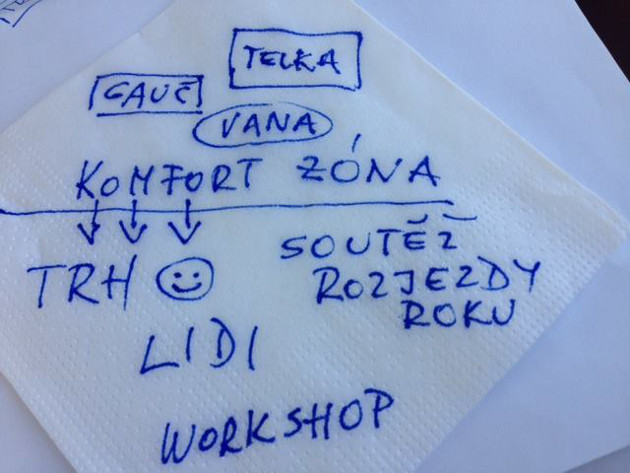 TELKA
GAUČ
VANA
KOMFORT ZÓNA
TRH
SOUTĚŽ
ROZJEZDY
ROKU
LIDI
WORKSHOP